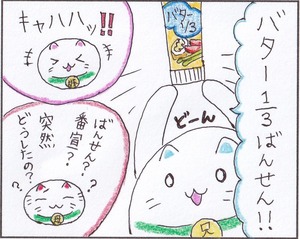 バター1/3ばんせん!!
バター
1/3
どーん
兄
キャハハッ!!
ばんせん??
番宣?
突然
どうしたの??